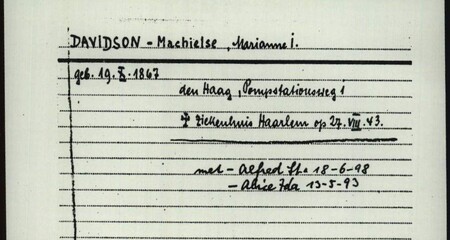 DAVIDSON - Machielse, Marianne i.
geb. 19.X.1867
den Haag, Pompstationsweg 1
Ziekenhuis Haarlem op 27.VIII.43.
met - Alfred St. 18-6-98
- Alice Ida 13-5-93